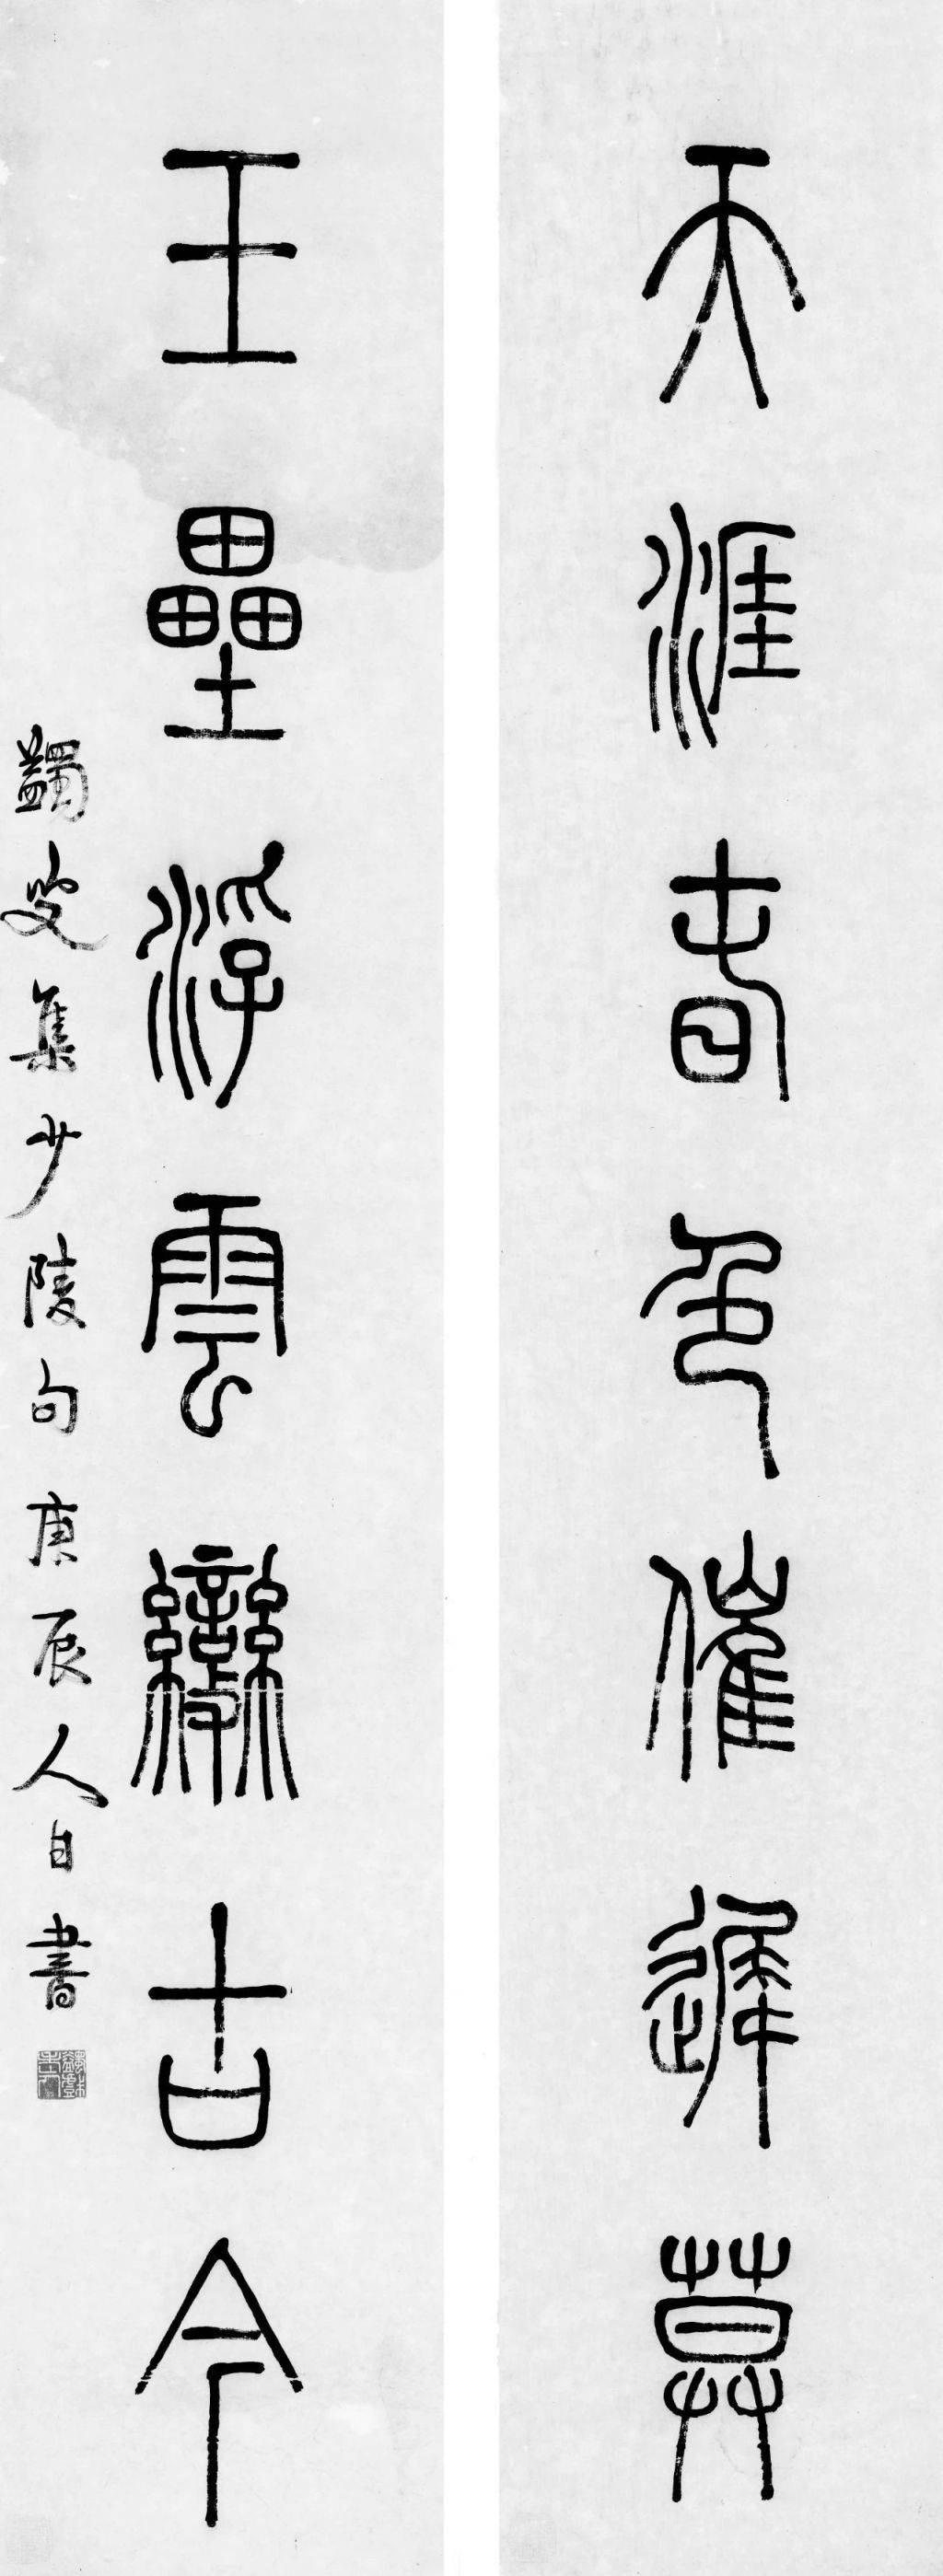 天涯春色催遲莫
玉壘浮雲變古今
蠲叟集少陵句庚辰人日書